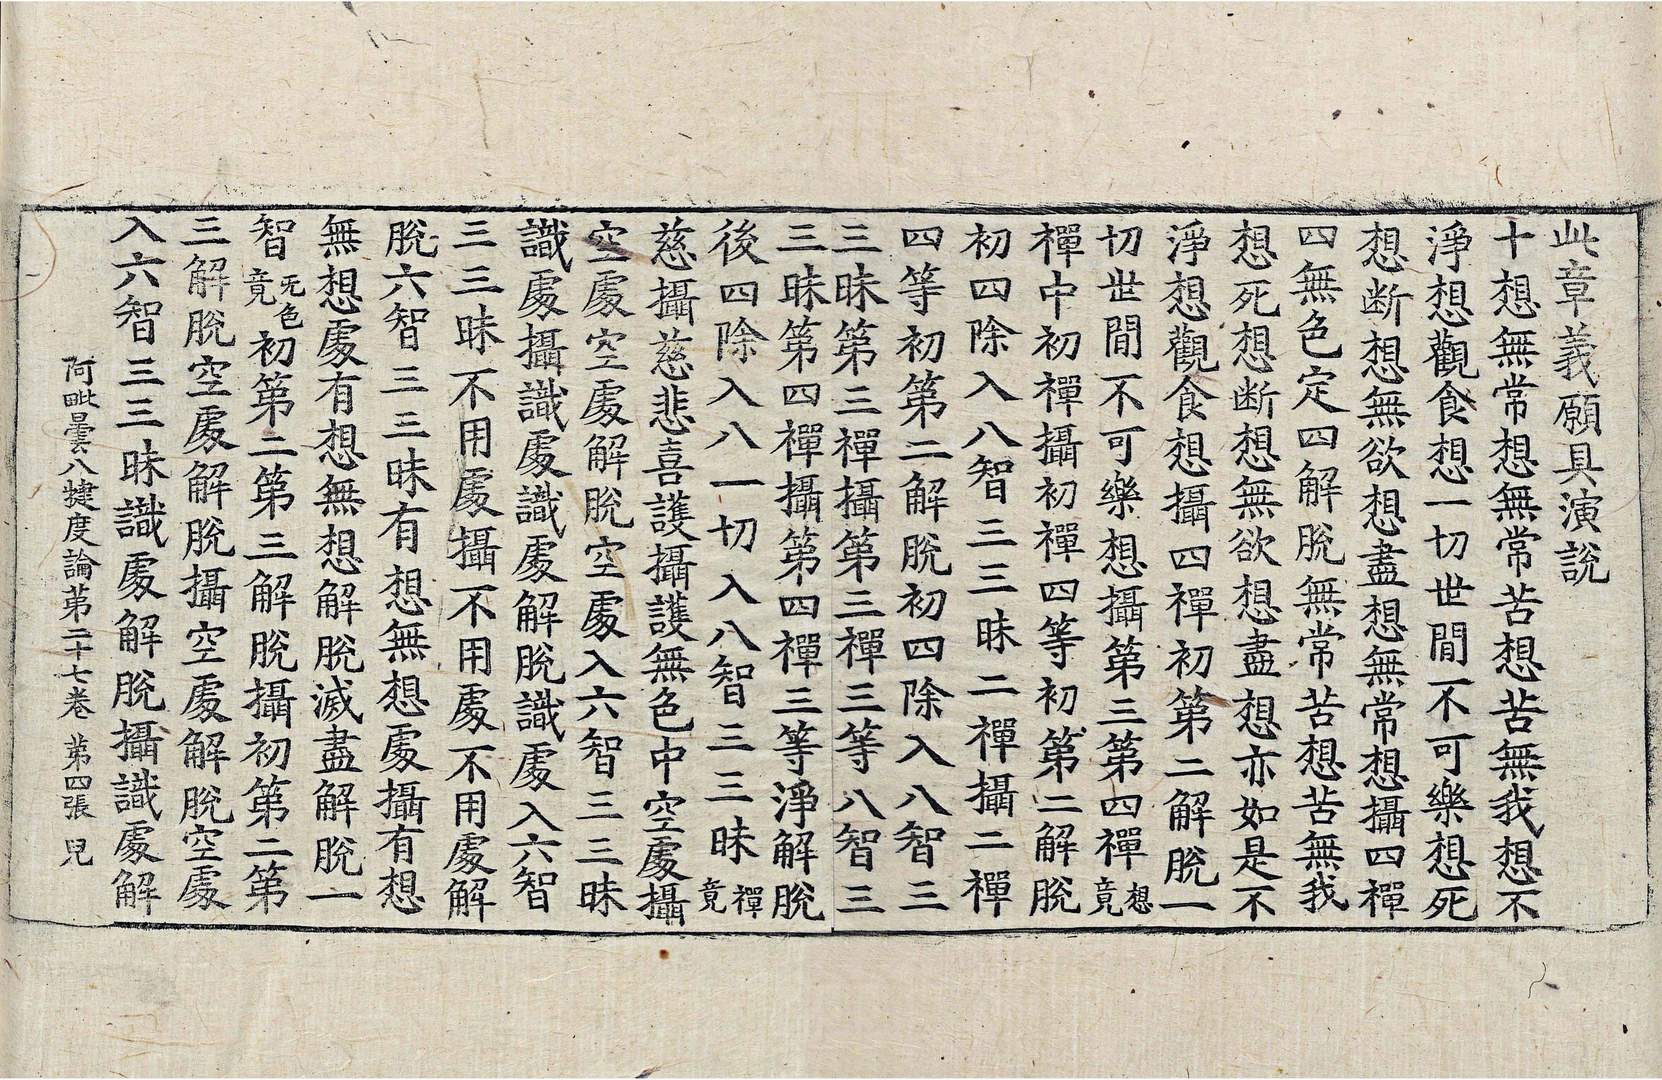 此章義願具演說
十想無常想無常苦想苦無我想不
淨想觀食想一切世閒不可樂想死
想断想無欲想盡想無常想攝四禪
四無色定四解脫無常苦想苦無我
想死想断想無欲想盡想亦如是不
淨想觀食想攝四禪初第二解脫一
切世閒不可樂想攝第三第四禪想竟
禪中初禪攝初禪四等初第二解脫
初四除入八智三三昧二禪攝二禪
四等初第二解脫初四除入八智三
三昧第三禪攝第三禪三等八智三
三昧第四禪攝第四禪三等淨解脫
後四除入八一切入八智三三昧禪竟
慈攝慈悲喜護攝護無色中空處攝
空處空處解脫空處入六智三三昧
識處攝識處識處解脫識處入六智
三三昧不用處攝不用處不用處解
脫六智三三昧有想無想處攝有想
無想處有想無想解脫滅盡解脫一
智无色竟初第二第三解脫攝初第二第
三解脫空處解脫攝空處解脫空處
入六智三三昧識處解脫攝識處解
阿毗曇八犍度論第二十七卷 第四張 皃